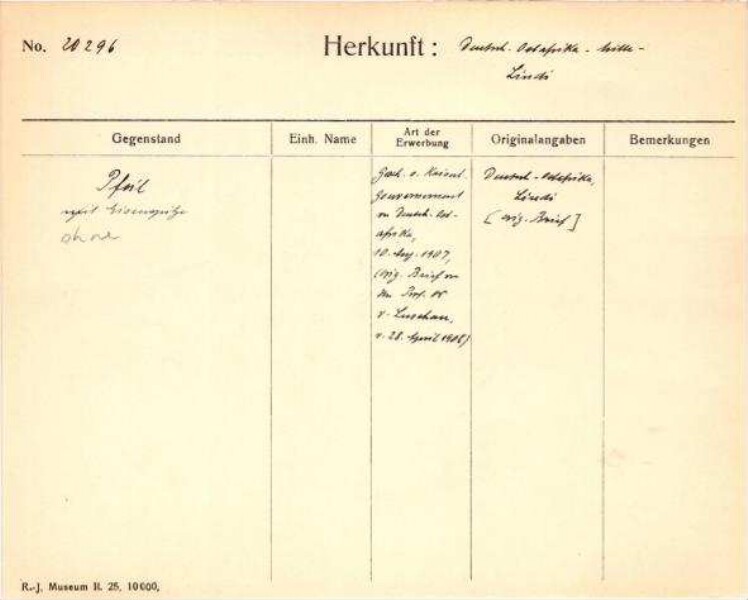 No. 20296 Herkunft: Deutsch-Ostafrika -
Lindi
Gegenstand
Einh. Name
Art der
Erwerbung
Originalangaben
Bemerkungen
Pfeil
mit Eisenspitze
ohne
Gesch. v. Kaiserl.
Gouvernement
Deutsch-Ost-
afrika,
10. 1907,
(orig. Brief
Prof. Dr
v. Luschan,
v. 28. April 1908)
Deutsch-Ostafrika,
Lindi
[orig. Brief]
R.-J. Museum B. 25, 10000,